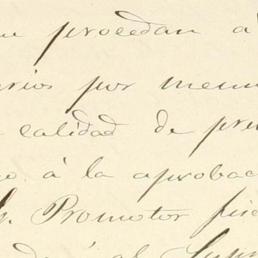 procedan a
por menu
calidad de pre
o à la aprobac
Promotor fisc